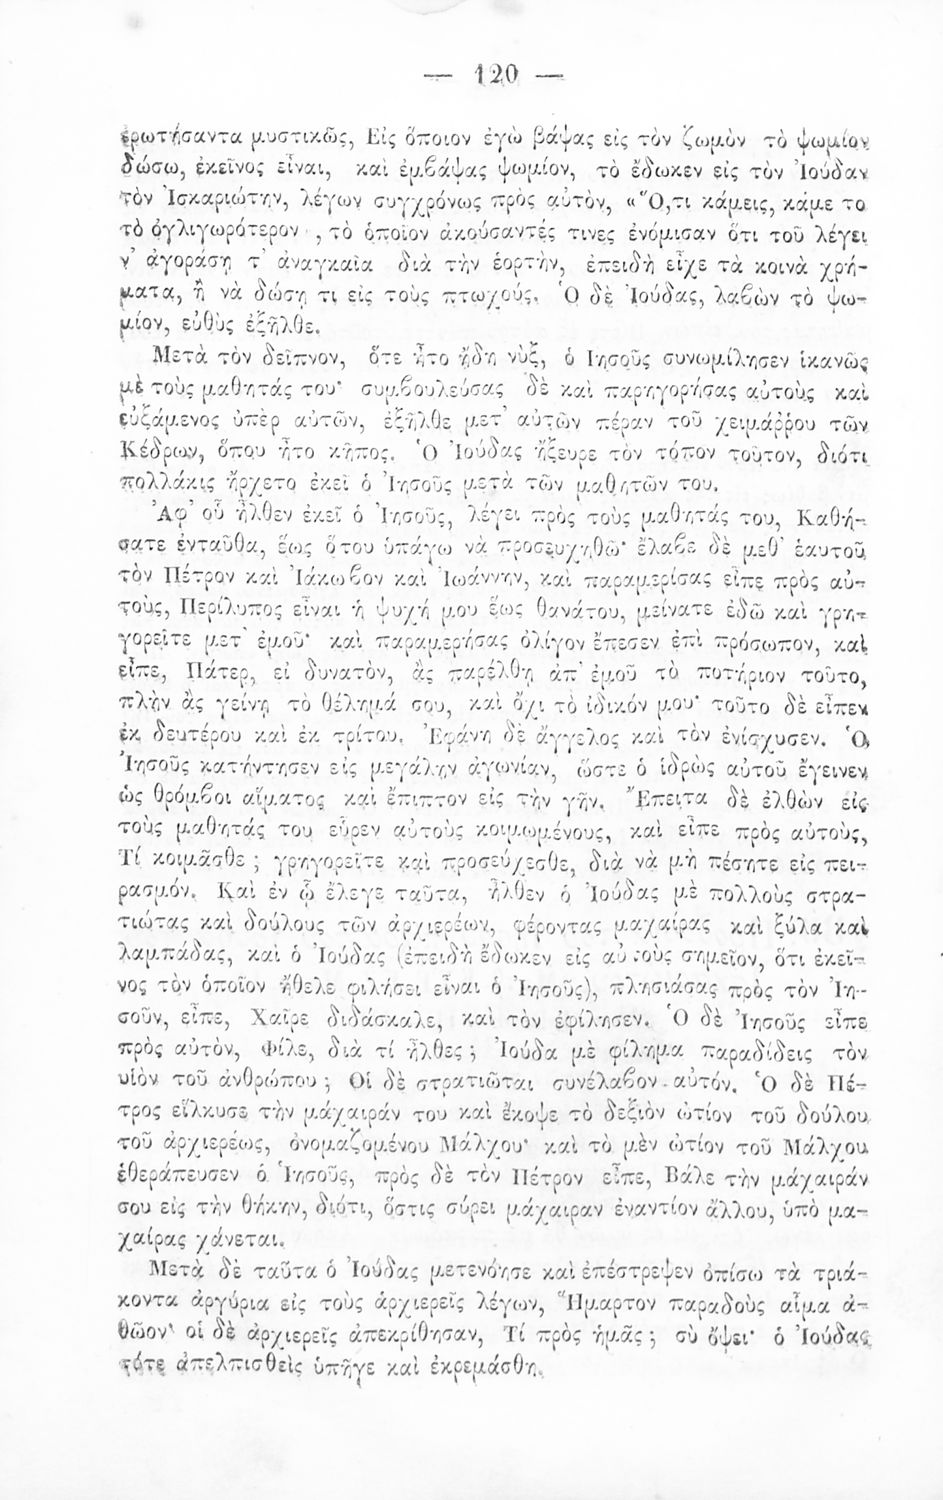 — 120 —
ἐρωτήσαντα μυστικῶς, Εἰς ὅποιον ἐγὼ βάψας εἰς τὸν ζωμὸν τὸ ψωμίον
δώσω, ἐκεῖνος εἶναι, καὶ ἐμβάψας ψωμίον, τὸ ἔδωκεν εἰς τὸν Ἰούδαν
τὸν Ἰσκαριώτην, λέγων συγχρόνως πρὸς αὐτὸν, «Ὅ,τι κάμεις, κάμε το
τὸ ὀγλιγωρότερον , τὸ ὁποῖον ἀκούσαντές τινες ἐνόμισαν ὅτι τοῦ λέγει
ν’ ἀγοράσῃ τ’ ἀναγκαῖα διὰ τὴν ἑορτὴν, ἐπειδὴ εἶχε τὰ κοινὰ χρή-
ματα, ἢ νὰ δώσῃ τι εἰς τοὺς πτωχούς. Ὁ δὲ Ἰούδας, λαβὼν τὸ ψω-
μίον, εὐθὺς ἐξῆλθε.
Μετὰ τὸν δεῖπνον, ὅτε ἦτο ἤδη νὺξ, ὁ Ιησοῦς συνωμίλησεν ἱκανῶς
μὲ τοὺς μαθητάς του· συμβουλεύσας δὲ καὶ παρηγορήσας αὐτοὺς καὶ
εὐξάμενος ὑπὲρ αὐτῶν, ἐξῆλθε μετ’ αὐτῶν πέραν τοῦ χειμάῤῥου τῶν
Κέδρων, ὅπου ἦτο κῆπος. Ὁ Ἰούδας ἤξευρε τὸν τόπον τοῦτον, διότι
πολλάκις ἤρχετο ἐκεῖ ὁ Ἰησοῦς μετὰ τῶν μαθητῶν του.
Ἀφ’ οὗ ἦλθεν ἐκεῖ ὁ Ἰησοῦς, λέγει πρὸς τοὺς μαθητάς του, Καθή-
σατε ἐνταῦθα, ἕως ὅτου ὑπάγω νὰ προσευχηθῶ· ἔλαβε δὲ μεθ’ ἑαυτοῦ
τὸν Πέτρον καὶ Ἰάκωβον καὶ Ἰωάννην, καὶ παραμερίσας εἶπε πρὸς αὐ-
τοὺς, Περίλυπος εἶναι ἡ ψυχή μου ἕως θανάτου, μείνατε ἐδῶ καὶ γρη-
γορεῖτε μετ’ ἐμοῦ· καὶ παραμερήσας ὀλίγον ἔπεσεν ἐπὶ πρόσωπον, καὶ
εἶπε, Πάτερ, εἰ δυνατὸν, ἂς παρέλθῃ ἀπ’ ἐμοῦ τὸ ποτήριον τοῦτο,
πλὴν ἂς γείνῃ τὸ θέλημά σου, καὶ ὄχι τὸ ἰδικόν μου· τοῦτο δὲ εἶπεν
ἐκ δευτέρου καὶ ἐκ τρίτου. Ἐφάνη δὲ ἄγγελος καὶ τὸν ἐνίσχυσεν. Ὁ
Ἰησοῦς κατήντησεν εἰς μεγάλην ἀγωνίαν, ὥστε ὁ ἱδρὼς αὐτοῦ ἔγεινεν
ὡς θρόμβοι αἵματος καὶ ἔπιπτον εἰς τὴν γῆν. Ἔπειτα δὲ ἐλθὼν εἰς
τοὺς μαθητάς του εὗρεν αὐτοὺς κοιμωμένους, καὶ εἶπε πρὸς αὐτοὺς,
Τί κοιμᾶσθε ; γρηγορεῖτε καὶ προσεύχεσθε, διὰ νὰ μὴ πέσητε εἰς πει-
ρασμόν. Καὶ ἐν ᾧ ἔλεγε ταῦτα, ἦλθεν ὁ Ἰούδας μὲ πολλοὺς στρα-
τιώτας καὶ δούλους τῶν ἀρχιερέων, φέροντας μαχαίρας καὶ ξύλα καὶ
λαμπάδας, καὶ ὁ Ἰούδας (ἐπειδὴ ἔδωκεν εἰς αὐτοὺς σημεῖον, ὅτι ἐκεῖ-
νος τὸν ὁποῖον ἤθελε φιλήσει εἶναι ὁ Ἰησοῦς), πλησιάσας πρὸς τὸν Ἰη-
σοῦν, εἶπε, Χαῖρε διδάσκαλε, καὶ τὸν ἐφίλησεν. Ὁ δὲ Ἰησοῦς εἶπε
πρὸς αὐτὸν, Φίλε, διὰ τί ἦλθες ; Ἰούδα μὲ φίλημα παραδίδεις τὸν
υἱὸν τοῦ ἀνθρώπου ; Οἱ δὲ στρατιῶται συνέλαβον αὐτόν. Ὁ δὲ Πέ-
τρος εἵλκυσε τὴν μάχαιράν του καὶ ἔκοψε τὸ δεξιὸν ὠτίον τοῦ δούλου
τοῦ ἀρχιερέως, ὀνομαζομένου Μάλχου· καὶ τὸ μὲν ὠτίον τοῦ Μάλχου
ἐθεράπευσεν ὁ Ἰησοῦς, πρὸς δὲ τὸν Πέτρον εἶπε, Βάλε τὴν μάχαιράν
σου εἰς τὴν θήκην, διότι, ὅστις σύρει μάχαιραν ἐναντίον ἄλλου, ὑπὸ μα-
χαίρας χάνεται.
Μετὰ δὲ ταῦτα ὁ Ἰούδας μετενόησε καὶ ἐπέστρεψεν ὀπίσω τὰ τριά-
κοντα ἀργύρια εἰς τοὺς ἀρχιερεῖς λέγων, Ἥμαρτον παραδοὺς αἷμα ἀ-
θῶον· οἱ δὲ ἀρχιερεῖς ἀπεκρίθησαν, Τί πρὸς ἡμᾶς ; σὺ ὄψει· ὁ Ἰούδας
τότε ἀπελπισθεὶς ὑπῆγε καὶ ἐκρεμάσθη.